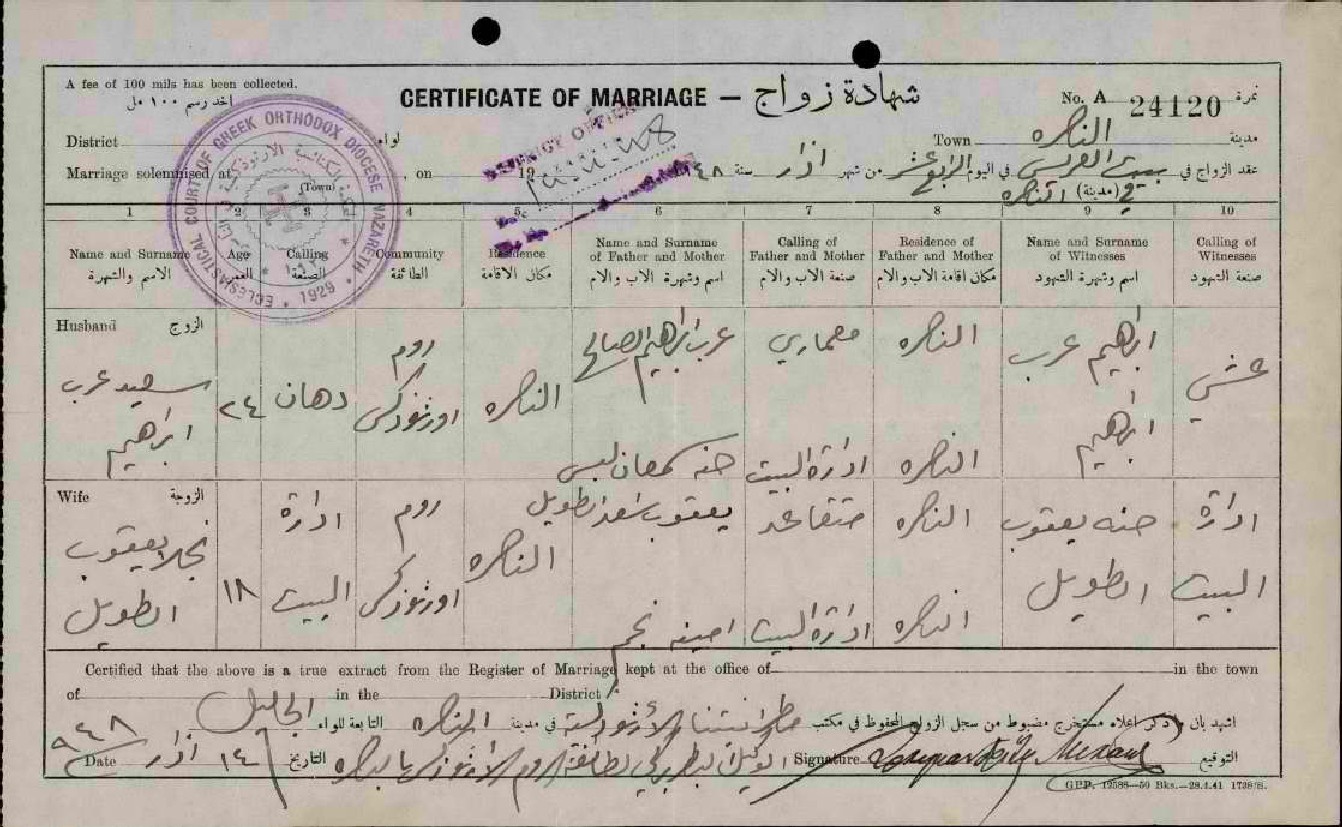 A fee of 100 mils has been collected.
اخذ رسم ١٠٠ مل
CERTIFICATE OF MARRIAGE — شهادة زواج
No. A 24120 نمرة
District لواء
Town الناصره مدينة
Marriage solemnised at (Town) on 19
عقد الزواج في بيت العريس في اليوم الرابع عشر من شهر اذار سنة ١٩٤٨
في (مدينة) الناصره
ECCLESIASTICAL COURT OF GREEK ORTHODOX DIOCESE NAZARETH * 1929 *
DISTRICT OFFICER
1 2 3 4 5 6 7 8 9 10
Name and Surname Age Calling Community Residence Name and Surname of Father and Mother Calling of Father and Mother Residence of Father and Mother Name and Surname of Witnesses Calling of Witnesses
الاسم والشهرة العمر الصنعة الطائفة مكان الاقامة اسم وشهرة الاب والام صنعة الاب والام مكان اقامة الاب والام اسم وشهرة الشهود صنعة الشهود
Husband الزوج
سعيد عرب ابراهيم
٢٤
دهان
روم اورثوذكس
الناصره
عرب ابراهيم الصالح
معماري
الناصره
ابراهيم عرب ابراهيم
حنه سمعان
ادارة البيت
الناصره
Wife الزوجة
نجلا يعقوب الطويل
١٨
ادارة البيت
روم اورثوذكس
الناصره
يعقوب اسعد الطويل
متقاعد
الناصره
حنه يعقوب الطويل
ادارة البيت
امينه نجم
ادارة البيت
الناصره
Certified that the above is a true extract from the Register of Marriage kept at the office of in the town
of in the District
اشهد بان ما ذكر اعلاه مستخرج مضبوط من سجل الزواج المحفوظ في مكتب الأرثوذكسية في مدينة الناصره التابعة للواء الجليل
Date ١٤ اذار ٩٤٨ التاريخ
الوكيل البطريركي لطائفة الروم الارثوذكس بالناصره
Signature التوقيع
G.P.P. 12588—50 Bks.—28.4.41 1728/S.